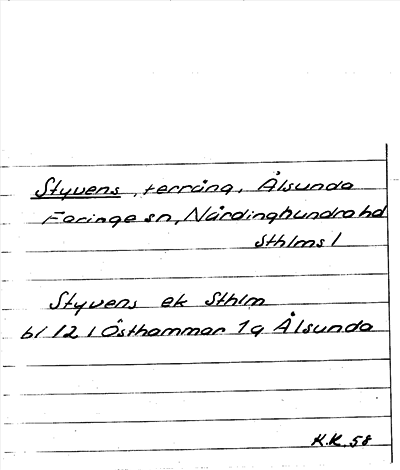 Styvens, terräng, Ålsunda
Faringe sn, Närdinghundra hd
Sthlms l
Styvens ek Sthlm
bl 12 I Östhammar 1q Ålsunda
K.K. 58